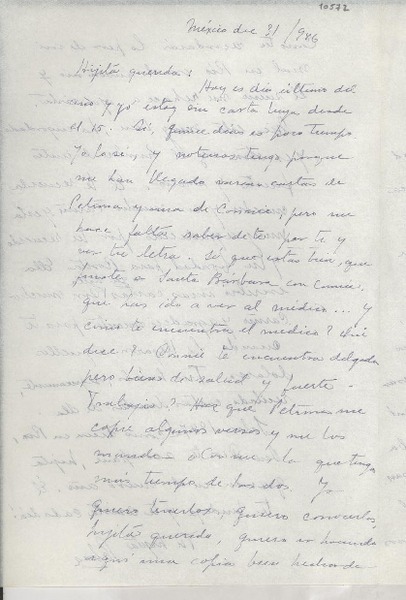 10572
México dic 31/946
Hijita querida:
Hoy es día último del
año y yo estoy sin carta tuya desde
el 15. Sí, quince días es poco tiempo
Ya lo sé, y noticias tengo porque
me han llegado varias cartas de
Petrina y una de Connie, pero me
hace falta saber de ti por ti y
ver tu letra. Sé que estás bien, que
fuiste a Santa Bárbara con Connie,
que ibas a ver al médico... y
cómo te encuentra el médico? Qué
dice? Connie te encuentra delgada
pero bien de salud y fuerte -
Trabajas? Haz que Petrina me
copie algunos versos y me los
mande o Connie, la que tenga
más tiempo de las dos. Yo
quiero tenerlos, quiero conocerlos,
hijita querida, quiero ir haciendo
aquí una copia bien hecha de